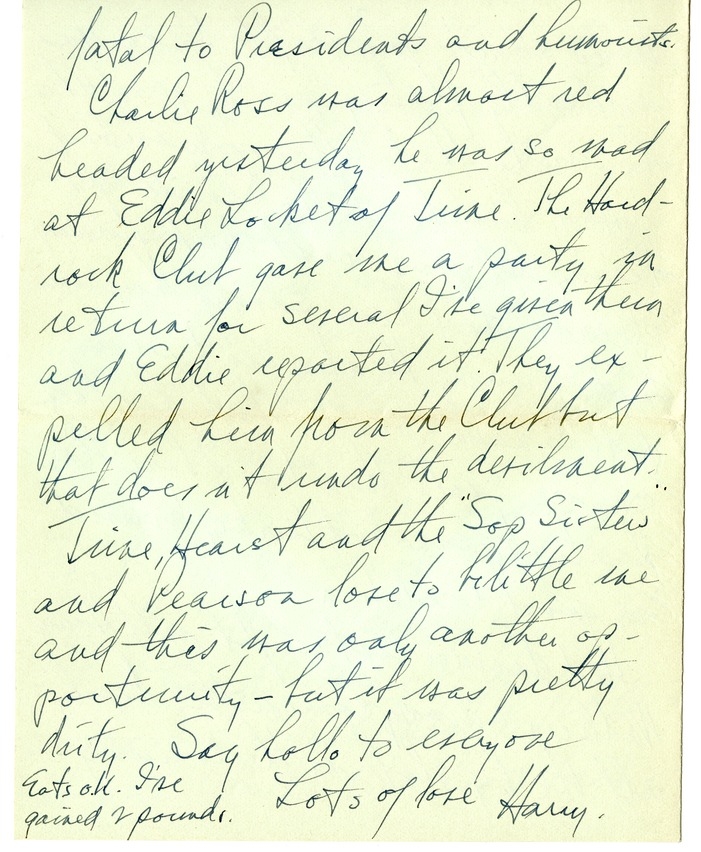 fatal to Presidents and humorists.
Charlie Ross was almost red
headed yesterday he was so mad
at Eddie Locket of Time. The Hard-
rock Club gave me a party in
return for several I've given them
and Eddie reported it! They ex-
pelled him from the Club but
that does n't undo the devilment.
Time, Hearst and the "Sop Sisters"
and Pearson love to belittle me
and this was only another op-
portunity - but it was pretty
dirty. Say hello to everyone
Lots of love Harry.
Eats o.k. I've
gained 2 pounds.